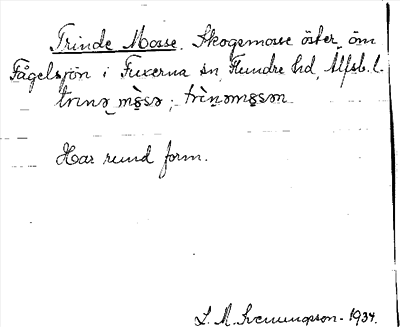 Trinde Mosse. Skogsmosse öster om
Fågelsjön i Fuxerna sn, Flundre hd, Älfsb. l.
trinə mòsə ; trìnəmosən
Har rund form.
L. M. Svenungsson - 1934.